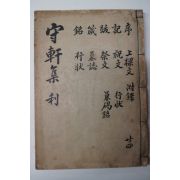 序 上樑文 附錄
記 祝文 行狀
跋 祭文 墓碣銘
箴 墓誌
銘 行狀
守軒集 利